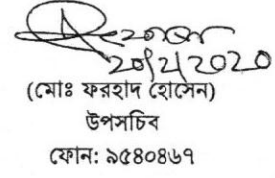 20/2/2020
(মোঃ ফরহাদ হোসেন)
উপসচিব
ফোন: ৯৫৪০৪৬৭